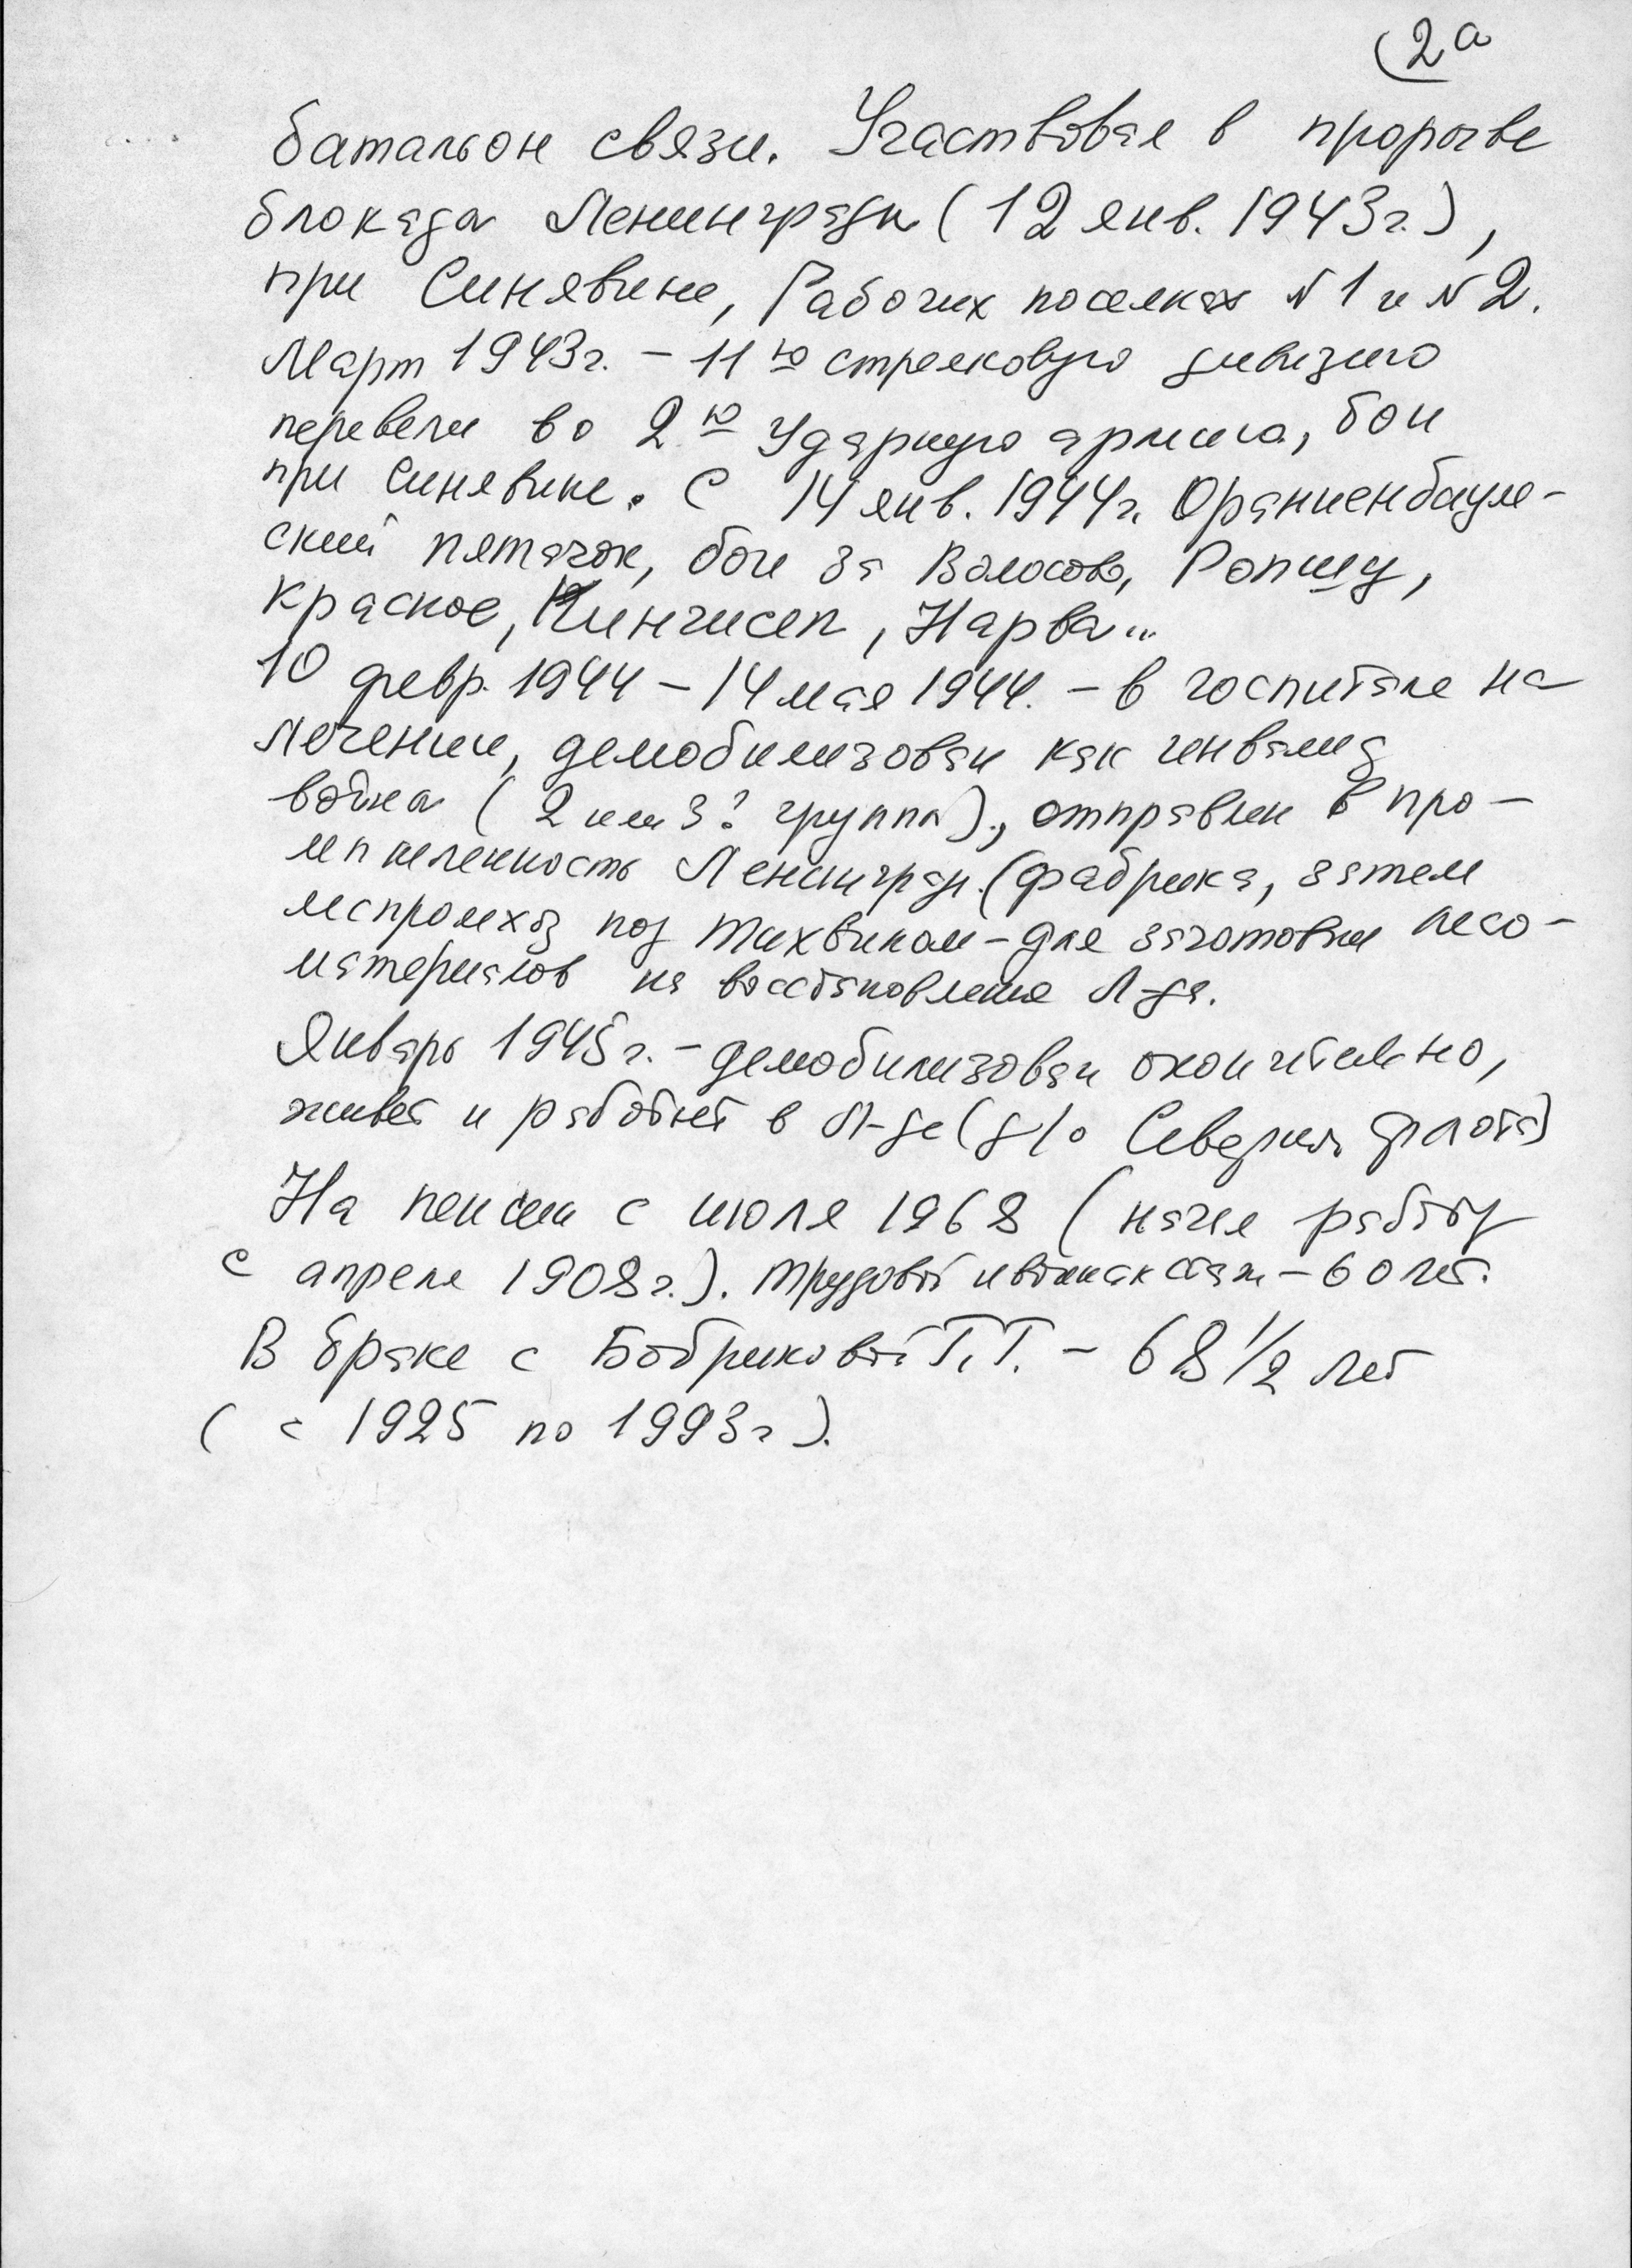 2а
батальон связи. Участвовал в прорыве
блокады Ленинграда (12 янв. 1943г.),
при Синявине, Рабочих поселках N1 и N2.
Март 1943г. – 11ю стрелковую дивизию
перевели во 2ю Ударную армию, бои
при Синявине. С 14 янв. 1944г. Ораниенбаум-
ский пятачок, бои за Волосово, Ропшу,
Красное, Кингисеп, Нарва...
10 февр. 1944 – 14 мая 1944. – в госпитале на
лечении, демобилизован как инвалид
войны (2 или 3? группы), отправлен в про-
мышленность Ленингра. (фабрика, затем
леспромхоз под Тихвином – для заготовки лесо-
материалов на восстановление Л-да.
Январь 1945г. – демобилизован окончательно,
живет и работает в Л-де (ф/о Северн. флота)
На пенсии с июля 1968 (начал работу
с апреля 1908г.). Трудовой и воинск стаж – 60 лет.
В браке с Бобриковой Т.Т. – 68 1/2 лет
(с 1925 по 1993г).